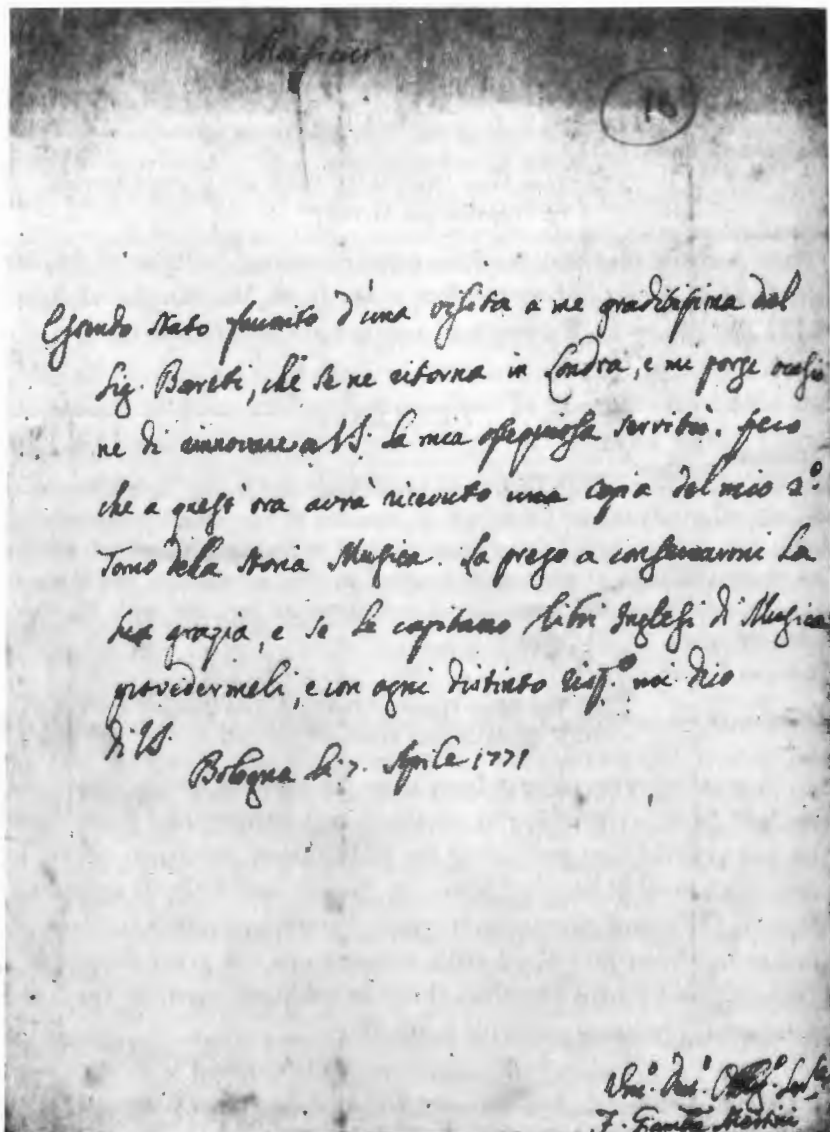 Monsieur
16
Essendo stato favorito d'una visita a me graditissima dal
Sig. Baretti, che se ne ritorna in Londra, e mi porge occasio
ne di rinnovare a VS. la mia ossequiosa servitù. Spero
che a quest'ora avrà ricevuto una copia del mio 2.º
Tomo della Storia Musica. La prego a conservarmi la
sua grazia, e se le capitano libri Inglesi di Musica
provedermeli, e con ogni distinto risp.º mi dico
di VS.
Bologna li 7. Aprile 1771
Um.º Dev.º Obblig.º
F. Giamba Martini